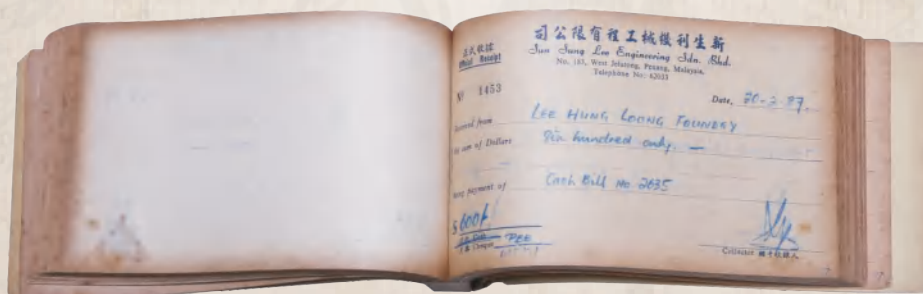 司公限有程工械機利生新
Sun Sang Lee Engineering Sdn. Bhd.
No. 183, West Jelutong, Penang, Malaysia,
Telephone No: 62033
正式收據
Official Receipt
№ 1453
Date, 20-2-87.
Received from LEE HUNG LOONG FOUNDRY
the sum of Dollars Six hundred only. —
Being payment of Cash Bill No 2635
$ 600/-
Cheque PBB
Collector 經手收銀人